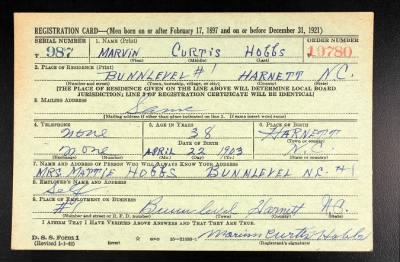 REGISTRATION CARD—(Men born on or after February 17, 1897 and on or before December 31, 1921)
SERIAL NUMBER 1. NAME (Print) ORDER NUMBER
T 987 MARVIN CURTIS HOBBS 10780
2. PLACE OF RESIDENCE (Print)
BUNNLEVEL #1 HARNETT N.C.
(Number and street) (Town, township, village, or city) (County) (State)
[THE PLACE OF RESIDENCE GIVEN ON THE LINE ABOVE WILL DETERMINE LOCAL BOARD
JURISDICTION; LINE 2 OF REGISTRATION CERTIFICATE WILL BE IDENTICAL]
3. MAILING ADDRESS
Same
[Mailing address if other than place indicated on line 2. If same insert word same]
4. TELEPHONE 5. AGE IN YEARS 6. PLACE OF BIRTH
none 38 HARNETT
DATE OF BIRTH (Town or county)
none APRIL 22 1903 N.C.
(Mo.) (Day) (Yr.) (State or country)
7. NAME AND ADDRESS OF PERSON WHO WILL ALWAYS KNOW YOUR ADDRESS
MRS. MATTIE HOBBS BUNNLEVEL N.C. #1
8. EMPLOYER'S NAME AND ADDRESS
Self
9. PLACE OF EMPLOYMENT OR BUSINESS
#1 Bunnlevel Harnett N.C.
(Number and street or R. F. D. number) (Town) (County) (State)
I AFFIRM THAT I HAVE VERIFIED ABOVE ANSWERS AND THAT THEY ARE TRUE.
D. S. S. Form 1
(Revised 1-1-42) (over) Marvin Curtis Hobbs
(Registrant's signature)